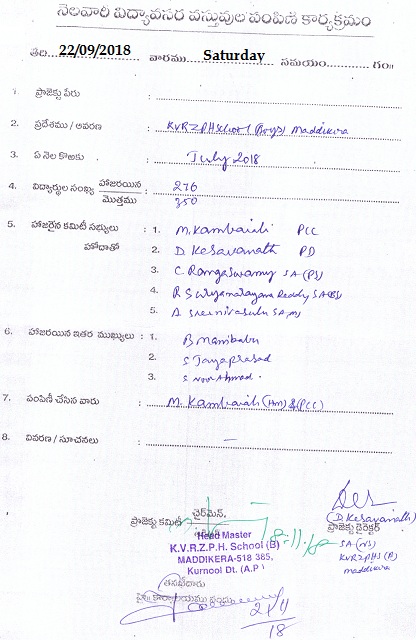 నెలవారీ విద్యావసర వస్తువుల పంపిణీ కార్యక్రమం
తేది 22/09/2018 వారము Saturday సమయం గం॥
1. ప్రాజెక్టు పేరు :
2. ప్రదేశము / ఆవరణ : KVRZPHSchool (Boys) Maddikera
3. ఏ నెల కొఱకు : July 2018
4. విద్యార్థుల సంఖ్య హాజరయిన : 276
మొత్తము 350
5. హాజరైన కమిటీ సభ్యులు : 1. M. Kambaiah PCC
హోదాతో 2. D. Kesavanath PD
3. C. Rangaswamy SA (PS)
4. R Suryanarayana Reddy SA (BS)
5. A Sreenivasulu SA
6. హాజరయిన ఇతర ముఖ్యులు : 1. B Manibabu
2. S Jayaprasad
3. S Noor Ahmad.
7. పంపిణీ చేసిన వారు : M. Kambaiah (HM) & (PCC)
8. వివరణ / సూచనలు : —
(D. Kesavanath)
ప్రాజెక్టు కమిటీ ఛైర్మెన్, ప్రాజెక్టు డైరెక్టర్
Head Master SA (NS)
K.V.R.Z.P.H. School (B) KVRZPHS (B)
MADDIKERA-518 385, Maddikera
Kurnool Dt. (A.P)
తనఖీదారు
21/11
18